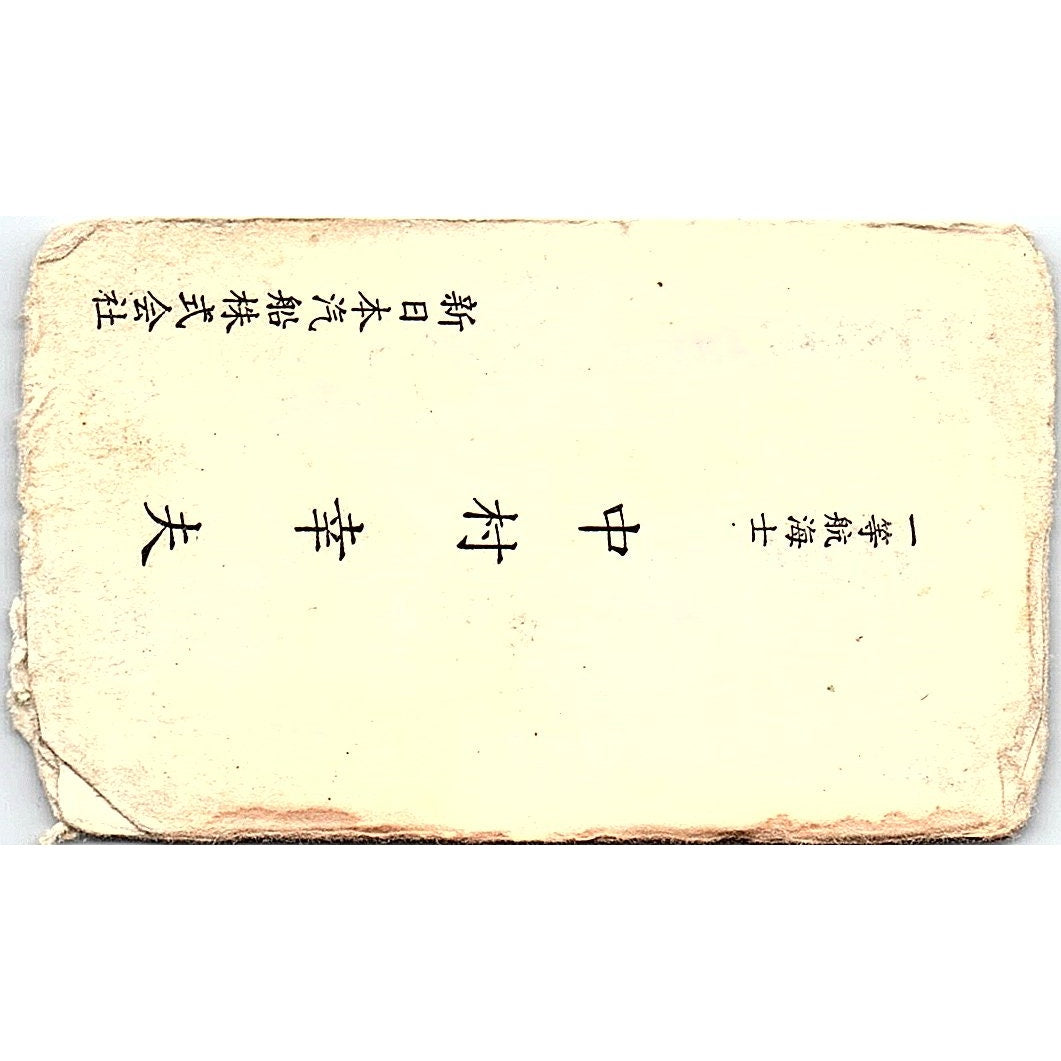 一等航海士
中村幸夫
新日本汽船株式会社